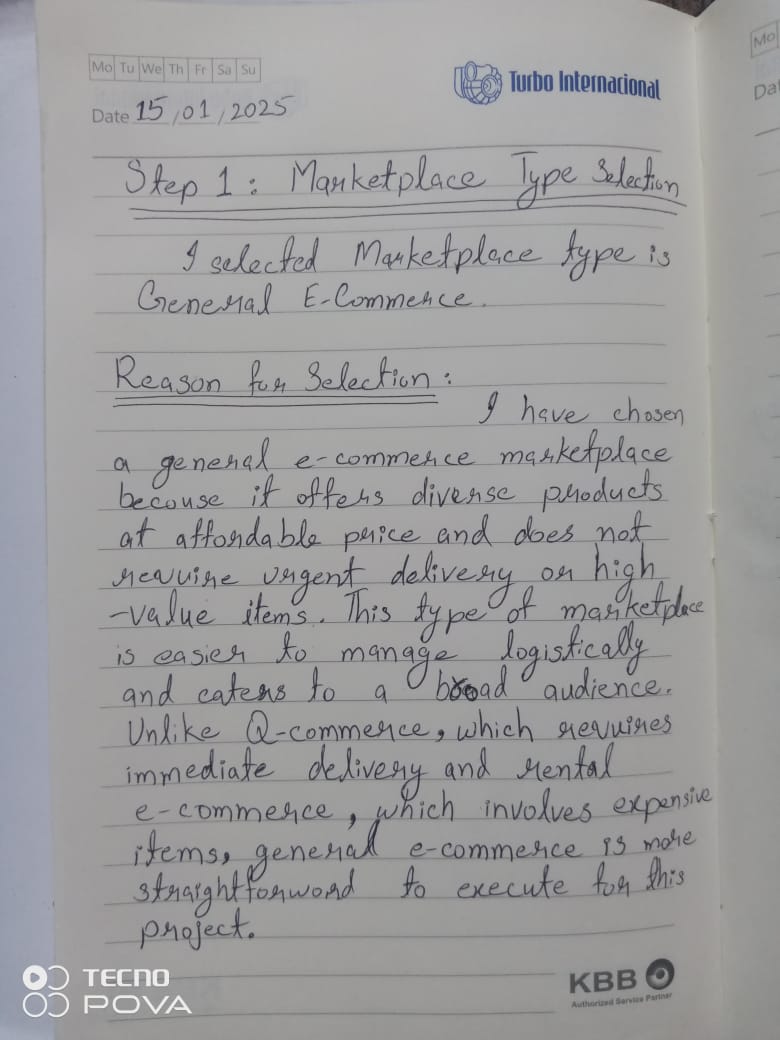 Mo Tu We Th Fr Sa Su
Turbo Internacional
Date 15/01/2025
Step 1: Marketplace Type Selection
I selected Marketplace type is
General E-Commerce.
Reason for Selection:
I have chosen
a general e-commerce marketplace
becouse it offers diverse products
at affordable price and does not
revuire urgent delivery or high
-value items. This type of marketplace
is easier to manage logistically
and caters to a broad audience.
Unlike Q-commerce, which revuires
immediate delivery and rental
e-commerce, which involves expensive
items, general e-commerce is more
straightforword to execute for this
project.
TECNO
POVA
KBB
Authorized Service Partner
Mo
Da